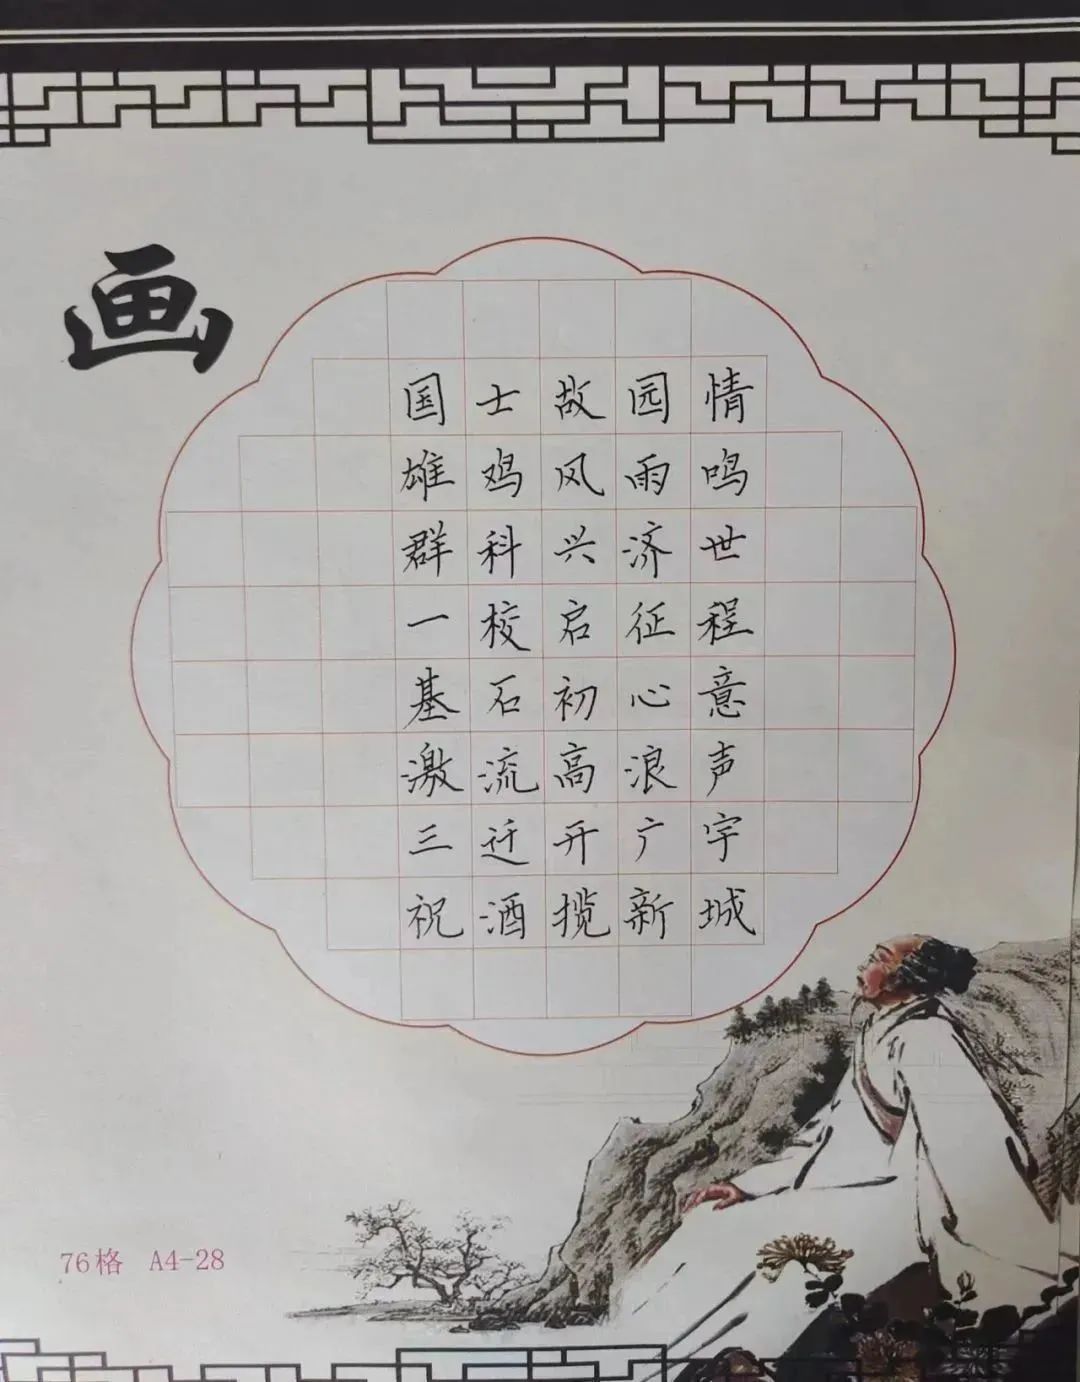 画
国士故园情
雄鸡风雨鸣
群科兴济世
一校启征程
基石初心意
激流高浪声
三迁开广宇
祝酒揽新城
76格 A4-28